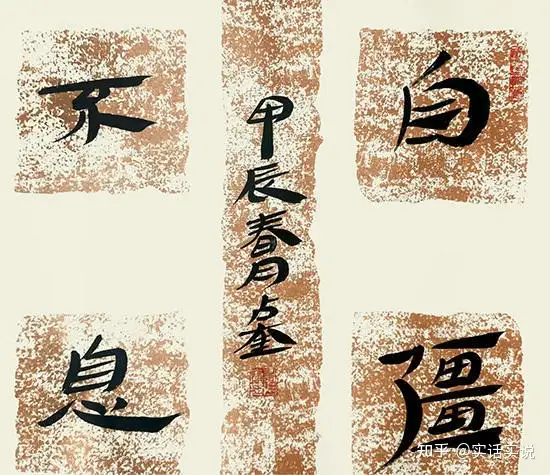 自彊
不息
甲辰春月
知乎 @实话实说